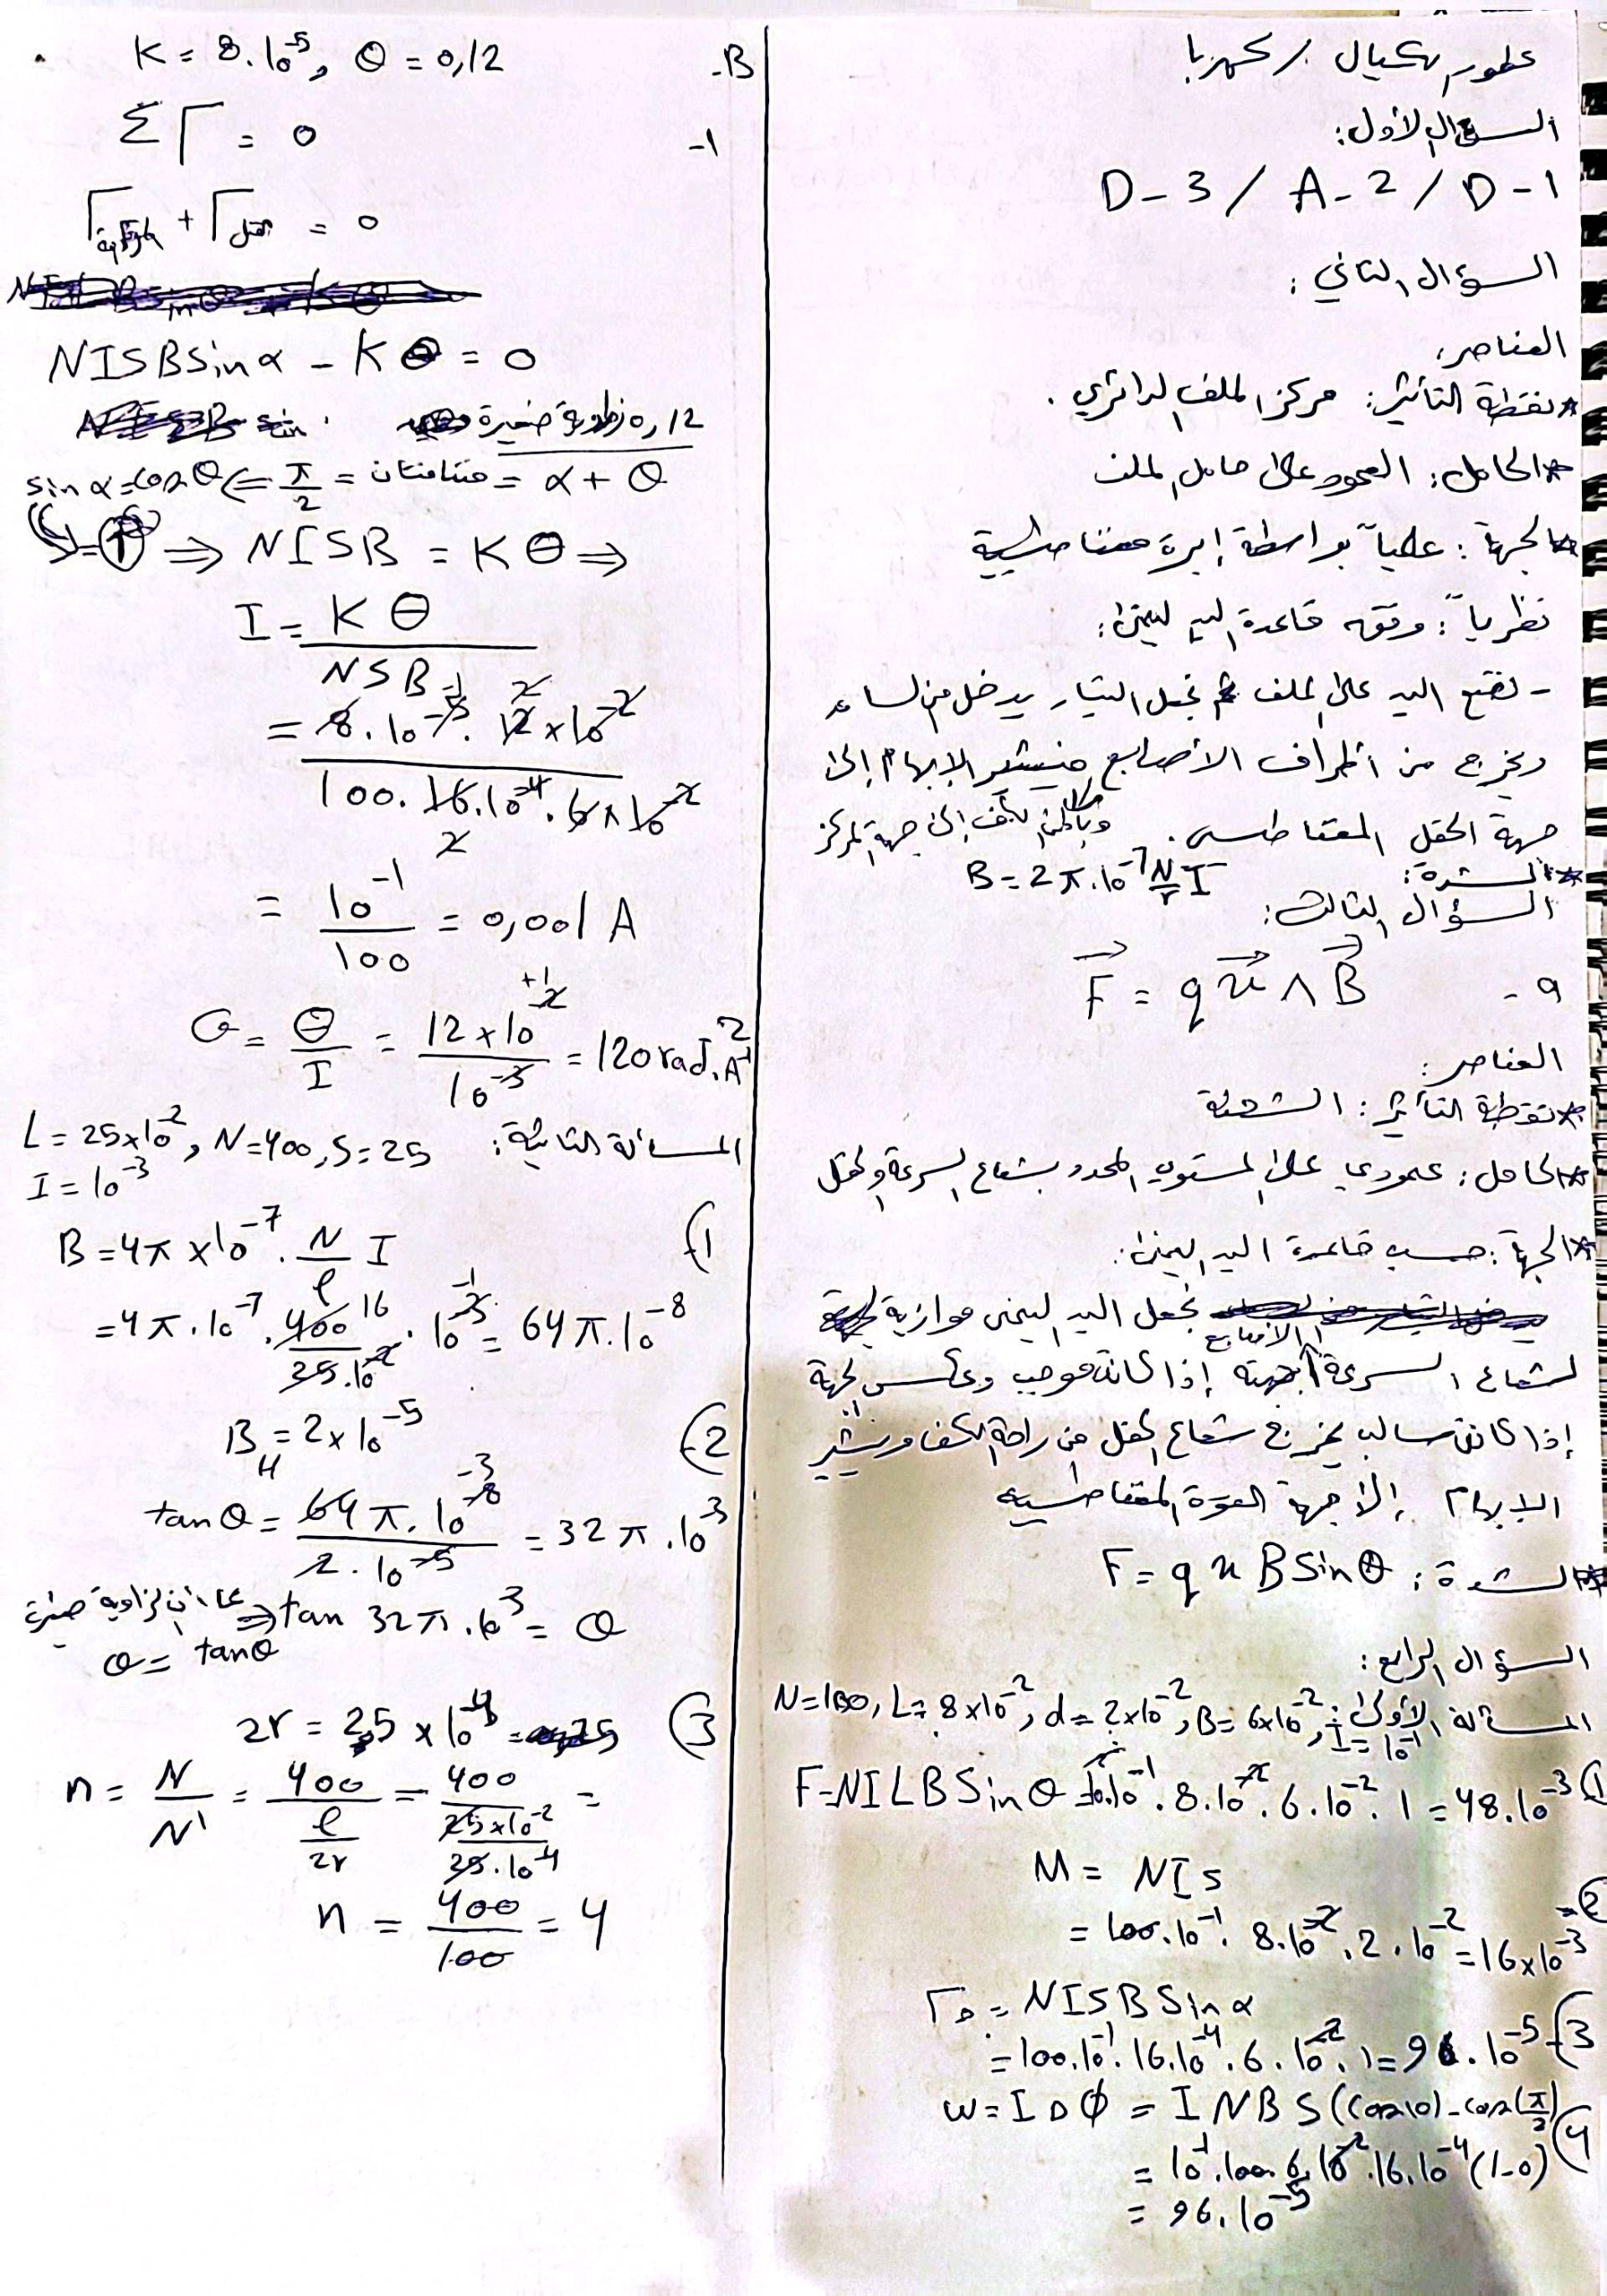 السؤال الأول:
D - 3 / A - 2 / D - 1
السؤال الثاني:
العناصر:
* نقطة التأثير: مركز الملف الدائري.
* الحامل: العمود على حامل الملف
* الجهة: عملياً بواسطة إبرة مغناطيسية
نظرياً: وفق قاعدة اليد اليمنى:
- نضع اليد على الملف نجعل التيار يدخل من الساعد
ويخرج من أطراف الأصابع فيشير الإبهام إلى
جهة الحقل المغناطيسي. وباطن الكف إلى جهة المركز
* الشدة: B = 2π.10⁻⁷ N/r I
السؤال الثالث:
a - F⃗ = q v⃗ ∧ B⃗
العناصر:
* نقطة التأثير: الشحنة
* الحامل: عمودي على المستوي المحدد بشعاع السرعة والحقل
* الجهة: حسب قاعدة اليد اليمنى:
نجعل اليد اليمنى موازية
لشعاع السرعة الأصابع بجهته إذا كانت موجب وعكس الجهة
إذا كانت سالب يخرج شعاع الحقل من راحة الكف ويشير
الإبهام إلى جهة القوة المغناطيسية
* الشدة: F = q v B Sin θ
السؤال الرابع:
المسألة الأولى: N = 100, L = 8×10⁻², d = 2×10⁻², B = 6×10⁻², I = 10⁻¹
1) F = NILB Sin θ = 10².10⁻¹. 8.10⁻². 6.10⁻². 1 = 48.10⁻³
2- M = NIs
= 100.10⁻¹. 8.10⁻². 2.10⁻² = 16×10⁻³
3- Γ = NISB Sin α
= 100.10⁻¹. 16.10⁻⁴. 6.10⁻². 1 = 96.10⁻⁵
4) W = I Δ Φ = I N B S (Cos(0) - cos(π/2)
= 10⁻¹.100. 6.10⁻².16.10⁻⁴ (1-0)
= 96.10⁻⁵
B- K = 8.10⁻⁵, θ = 0,12
1- Σ Γ = 0
Γ + Γ = 0
NISB Sin α - K θ = 0
0,12 زاوية صغيرة
θ + α = متتامتان = π/2 ⇒ sin α = cos θ
⇒ NISB = K θ ⇒
I = K θ / NSB
= 8.10⁻⁵. 12×10⁻² / 100. 16.10⁻⁴. 6×10⁻²
= 10⁻¹ / 100 = 0,001 A
G = θ / I = 12×10⁻² / 10⁻³ = 120 rad.A⁻¹
المسألة الثانية: L = 25×10⁻², N = 400, S = 25
I = 10⁻³
1) B = 4π×10⁻⁷. N/ℓ I
= 4π.10⁻⁷. 400/25.10⁻² . 10⁻³ = 64π.10⁻⁸
2) B_H = 2×10⁻⁵
tan θ = 64π.10⁻⁸ / 2.10⁻⁵ = 32π.10⁻³
بما أن الزاوية صغيرة ⇒ tan 32π.10⁻³ = θ
θ = tan θ
3) 2r = 25×10⁻⁴
n = N/N' = 400 / ℓ/2r = 400 / 25×10⁻²/25.10⁻⁴ =
n = 400/100 = 4